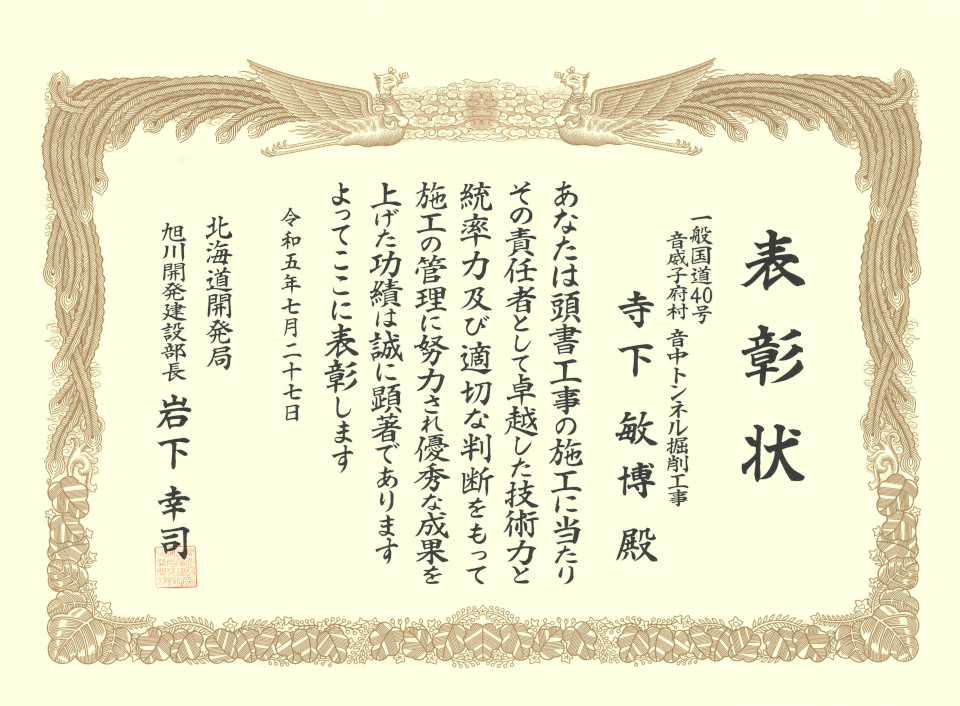 表彰状
一般国道40号
音威子府村 音中トンネル掘削工事
寺下 敏博 殿
あなたは頭書工事の施工に当たり
その責任者として卓越した技術力と
統率力及び適切な判断をもって
施工の管理に努力され優秀な成果を
上げた功績は誠に顕著であります
よってここに表彰します
令和五年七月二十七日
北海道開発局
旭川開発建設部長 岩下 幸司